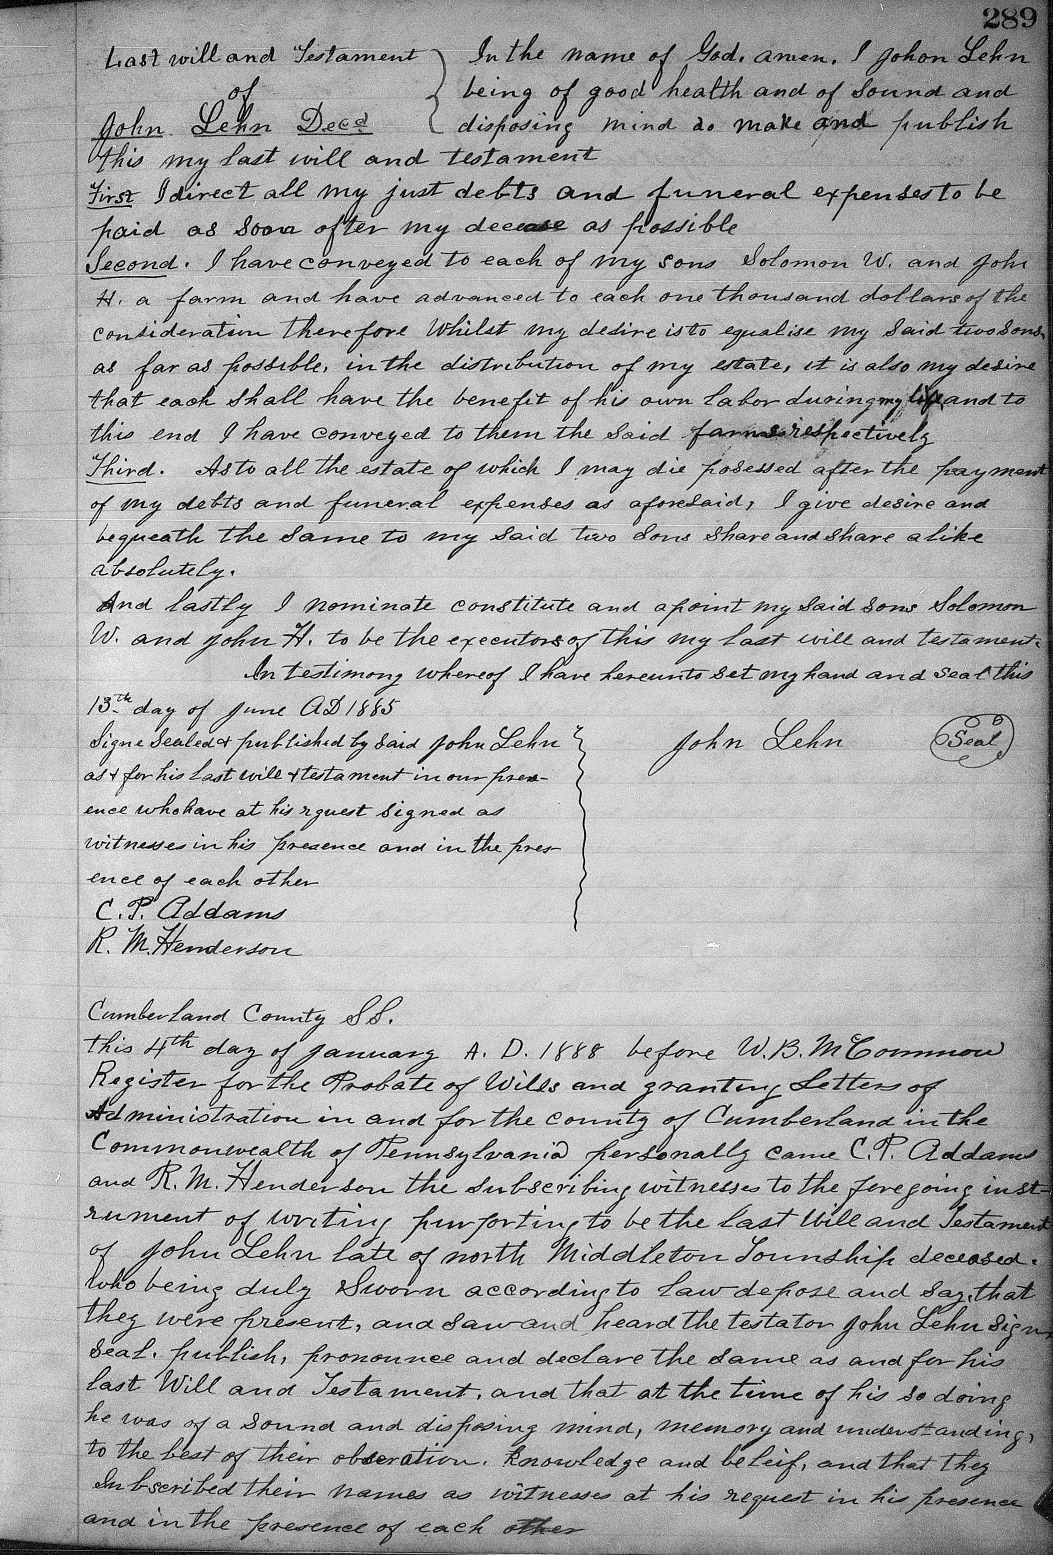 289
Last will and Testament
of
John Lehn Decd
In the name of God, amen. I Johon Lehn
being of good health and of sound and
disposing mind do make and publish
this my last will and testament
First I direct all my just debts and funeral expenses to be
paid as soon after my decease as possible
Second. I have conveyed to each of my sons Solomon W. and John
H. a farm and have advanced to each one thousand dollars of the
consideration therefore Whilst my desire is to equalise my said two sons
as far as possible, in the distribution of my estate, it is also my desire
that each shall have the benefit of his own labor during my life and to
this end I have conveyed to them the said farms respectively
Third. As to all the estate of which I may die posessed after the payment
of my debts and funeral expenses as aforesaid, I give desire and
bequeath the same to my said two sons share and share alike
absolutely.
And lastly I nominate constitute and apoint my said sons Solomon
W. and John H. to be the executors of this my last will and testament.
In testimony whereof I have hereunto set my hand and seal this
13th day of June AD 1885
Signe Sealed & published by said John Lehn
as & for his last will & testament in our pres-
ence who have at his rquest signed as
witnesses in his presence and in the pres-
ence of each other
C. P. Addams
R. M. Henderson
John Lehn
Seal
Cumberland County SS.
this 4th day of January A. D. 1888 before W. B. McCommon
Register for the Probate of Wills and granting Letters of
Administration in and for the county of Cumberland in the
Commonwealth of Pennsylvania personally came C. P. Addams
and R. M. Henderson the subscribing witnesses to the foregoing inst-
rument of writing purporting to be the last Will and Testament
of John Lehn late of north Middleton Township deceased.
who being duly Sworn according to law depose and say, that
they were present, and saw and heard the testator John Lehn sign
seal, publish, pronounce and declare the same as and for his
last Will and Testament, and that at the time of his so doing
he was of a sound and disposing mind, memory and understanding,
to the best of their obseration, knowledge and beleif, and that they
Subscribed their names as witnesses at his request in his presence
and in the presence of each other